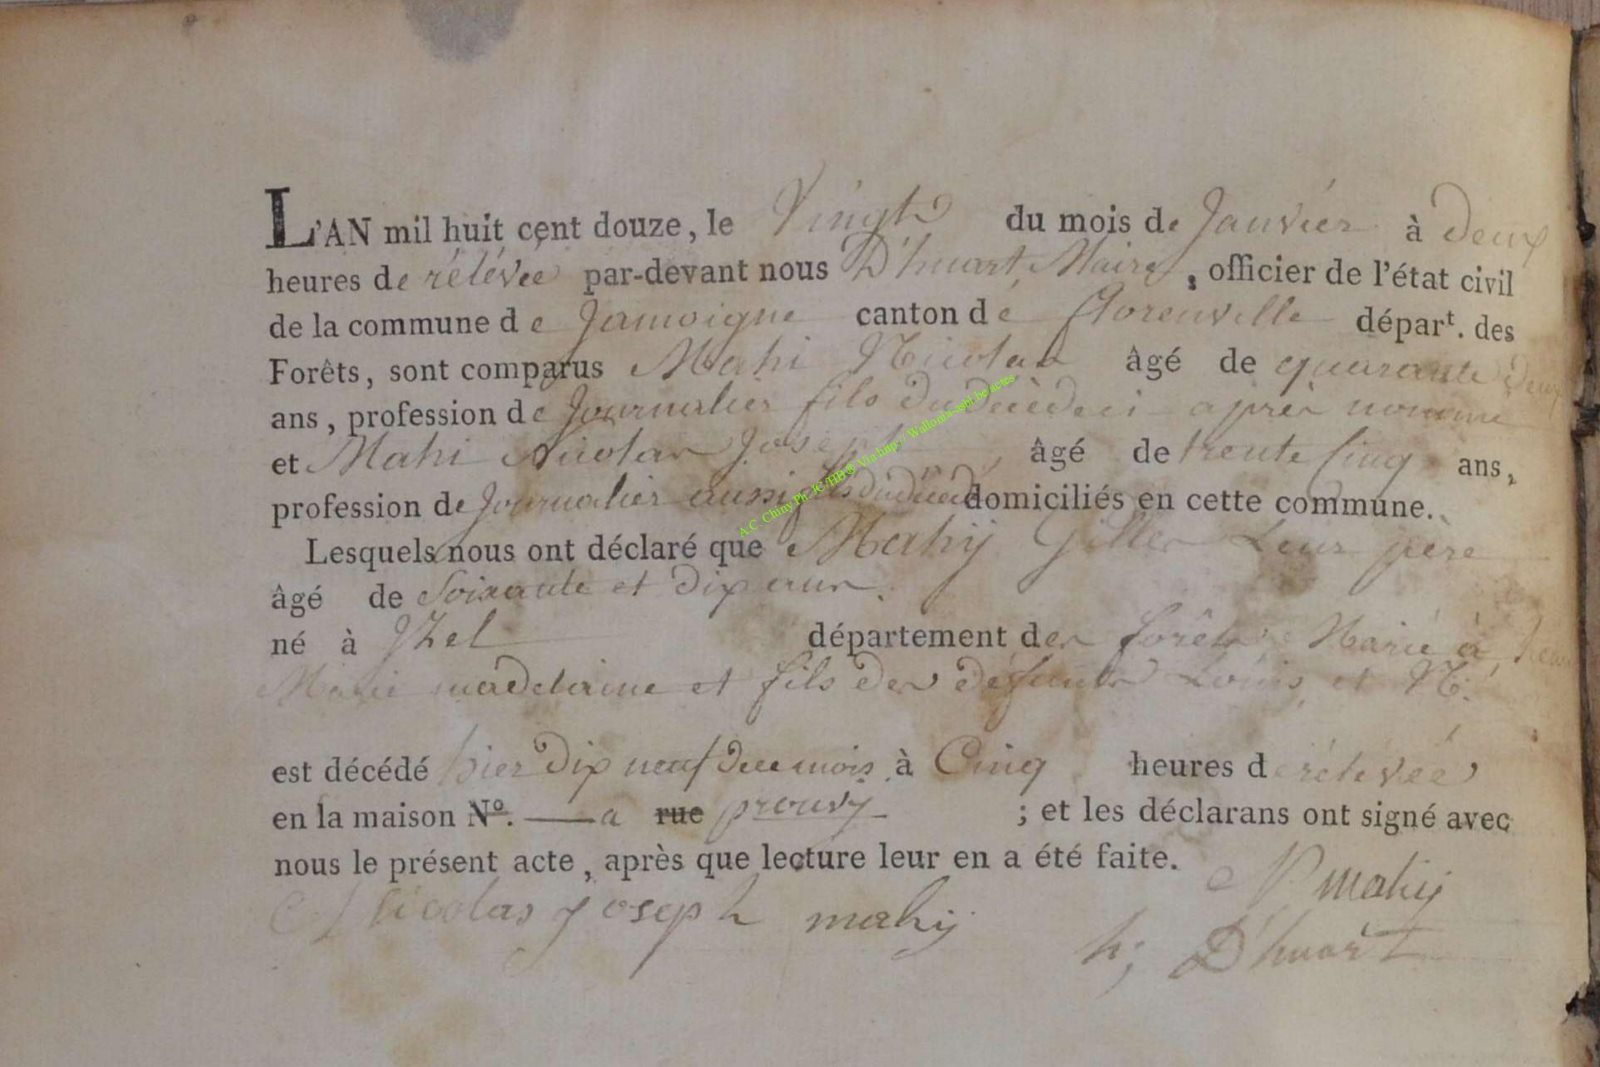 L'AN mil huit cent douze, le Vingt du mois de Janvier à deux
heures de rélévée par-devant nous D'huart Maire, officier de l'état civil
de la commune de Jamoigne canton dé florenville départ. des
Forêts, sont comparus Mahi Nicolas âgé de quarante deux
ans, profession de Journalier fils du décèdeé après nommé
et Mahi Nicolas Joseph âgé de trente Cinq ans,
profession de Journalier aussi fils du décédé domiciliés en cette commune.
Lesquels nous ont déclaré que Mahij Gilles Leur père
âgé de Soixante et dix ans.
né à Izel département des forêts Marié à
Marie madelaine et fils des défunts Louis et N.
est décédé hier dix neuf dece mois à Cinq heures de rélevéé
en la maison Nº. — a rue prouvÿ ; et les déclarans ont signé avec
nous le présent acte, après que lecture leur en a été faite.
N mahij
Nicolas joseph mahij
h; D'huart
A.C. Chiny Ph. JC THB & Vinfino / Wallonia-asbl.be actes